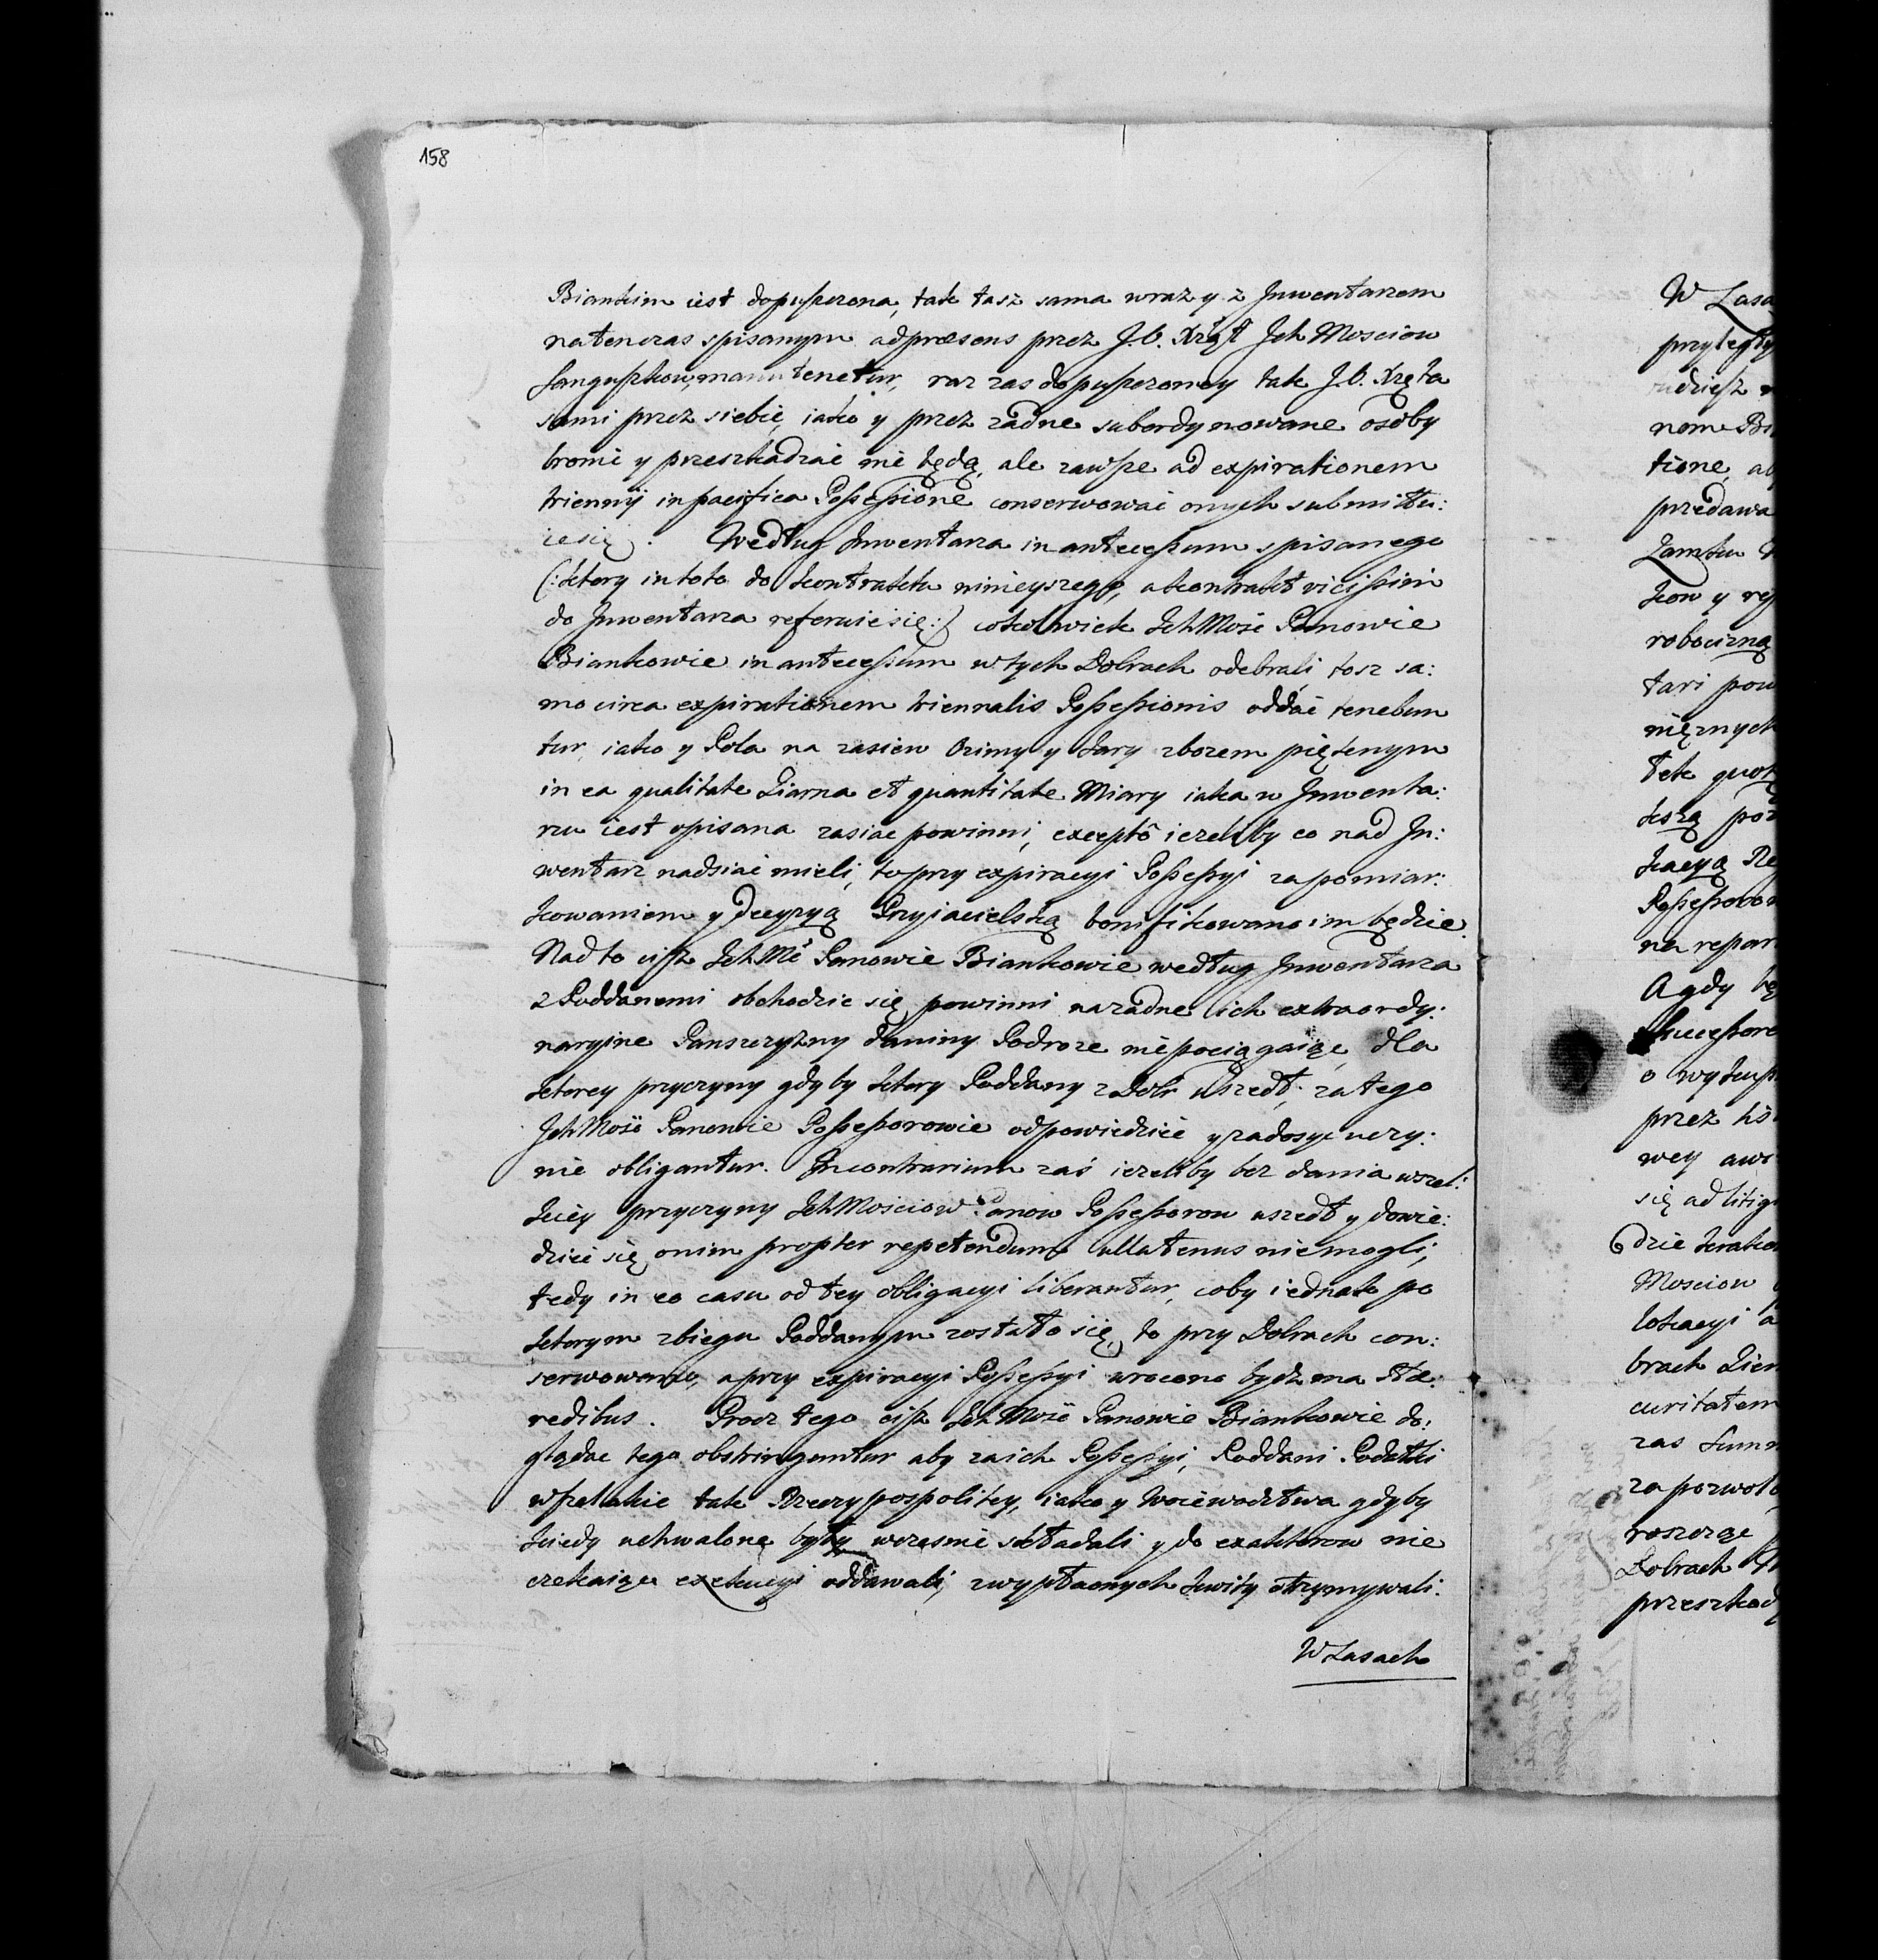 158
Biankim iest dopuszczona, tak tasz sama wraz y z Inwentarzem
natenczas spisanym adpræsens przez J.O. Xżąt Ich Mosciow
Sanguszkow, manutenetur, raz zas dopuszczoney tak J.O. Xżęta
sami przez siebie, iako y przez zadne subordynowane osoby
bronić y przeszkadzać nie będą, ale zawsze ad expirationem
triennij in pacifica Possessione conserwować onych submittu:
ie się. Według Inwentarza in antecessum spisanego
(:ktory in toto do kontraktu ninieyszego, a kontrakt vicissim
do Inwentarza referuie się:) cokolwiek Ich Mość Panowie
Biankowie in antecessum w tych Dobrach odebrali, tosz sa:
mo circa expirationem triennalis Possessionis oddać tenebun
tur, iako y Pola na zasiew Ozimy y Jary zbozem pięknym
in ea qualitate Ziarna et quantitate Miary iaka w Inwenta:
rzu iest opisana zasiac powinni, exceptô iezeliby co nad In:
wentarz nadsiać mieli, to przy expiracyi Possessyi za pomiar:
kowaniem y Decyzyą Przyiacielską bonifikowano im będzie.
Nadto cisz Ich Mć Panowie Biankowie według Inwentarza
z Poddanemi obchodzic się powinni na zadne ich extraordy:
naryine Panszczyzny daniny Podroze niepociągaiąc, dla
ktorey przyczyny gdyby ktory Poddany z Dobr uszedł, za tego
Ich Mość Panowie Possessorowie odpowiedzieć y zadosyc uczy:
nić obligantur. In contrarium zaś iezeliby bez dania wszel:
kiey przyczyny Ich Mosciow Panow Possessorow uszedł y dowie:
dzieć się onim propter repetendum ullatenus niemogli,
tedy in eo casu od tey obligacyi liberantur, coby iednak po
ktorym zbiegu Poddanym zostało się, to przy Dobrach con:
serwowano, a przy expiracyi Possessyi wrocono bydz ma Hæ:
redibus. Procz tego cisz Ich Mość Panowie Biankowie do:
glądac tego obstringuntur aby za ich Possessyi, Poddani Podatki
wszelakie tak Rzeczypospolitey, iako y Woiewodztwa gdyby
kiedy uchwalone były wczesnie składali y do exaktorow nie
czekaiąc exekucyi oddawali, z wypłaconych kwity otrzymywali.
W Lasach
W Lasa
przyległy
nom Bi
tione, ab
przedawa
Zamku
kow y re
robocizną
tari pow
nięznych
kszą poz
kacyą Re
Possessorow
na repar
A gdy bę
Successore
o wykup
przez
wey
się ad litig
dzie krako
Mosciow
lokacyi a
brach Ziem
curitatem
zas Summ
za pozwol
roszcząc
Dobrach
przeszkod